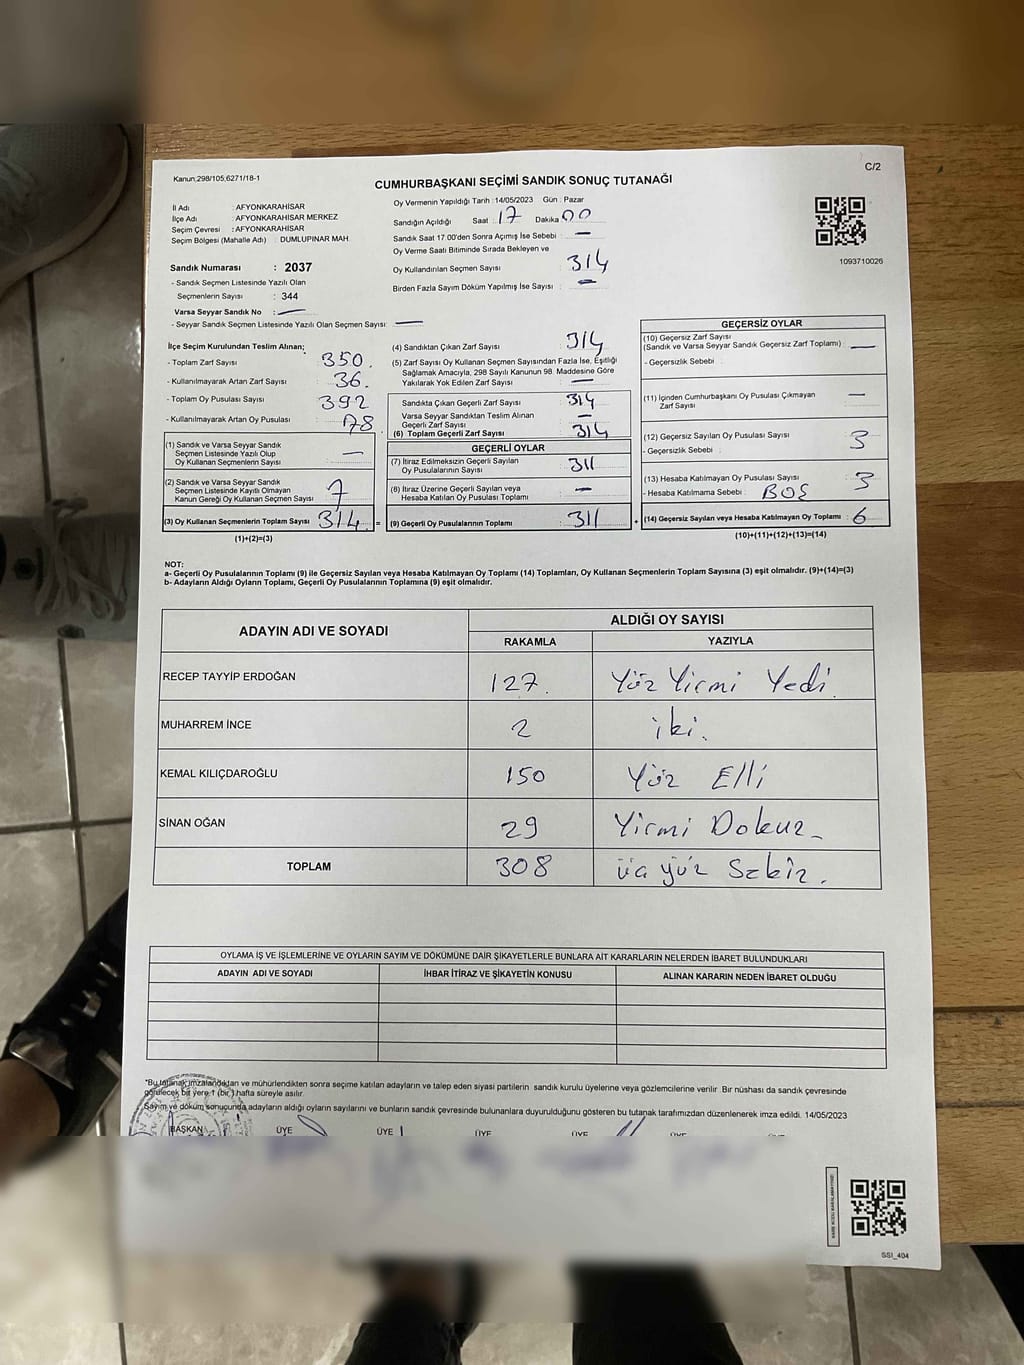 Kanun;298/105;6271/18-1
C/2
CUMHURBAŞKANI SEÇİMİ SANDIK SONUÇ TUTANAĞI
İl Adı : AFYONKARAHİSAR
İlçe Adı : AFYONKARAHİSAR MERKEZ
Seçim Çevresi : AFYONKARAHİSAR
Seçim Bölgesi (Mahalle Adı) : DUMLUPINAR MAH.
Sandık Numarası : 2037
- Sandık Seçmen Listesinde Yazılı Olan
Seçmenlerin Sayısı : 344
Varsa Seyyar Sandık No : —
- Seyyar Sandık Seçmen Listesinde Yazılı Olan Seçmen Sayısı: —
Oy Vermenin Yapıldığı Tarih : 14/05/2023 Gün : Pazar
Sandığın Açıldığı Saat : 17 Dakika : 00
Sandık Saat 17.00'den Sonra Açımış İse Sebebi : —
Oy Verme Saati Bitiminde Sırada Bekleyen ve
Oy Kullandırılan Seçmen Sayısı : 314
Birden Fazla Sayım Döküm Yapılmış İse Sayısı : —
1093710026
İlçe Seçim Kurulundan Teslim Alınan;
- Toplam Zarf Sayısı 350.
- Kullanılmayarak Artan Zarf Sayısı : 36.
- Toplam Oy Pusulası Sayısı : 392
- Kullanılmayarak Artan Oy Pusulası : 78
(1) Sandık ve Varsa Seyyar Sandık
Seçmen Listesinde Yazılı Olup
Oy Kullanan Seçmenlerin Sayısı : —
(2) Sandık ve Varsa Seyyar Sandık
Seçmen Listesinde Kayıtlı Olmayan
Kanun Gereği Oy Kullanan Seçmen Sayısı : 7
(3) Oy Kullanan Seçmenlerin Toplam Sayısı 314 =
(1)+(2)=(3)
(4) Sandıktan Çıkan Zarf Sayısı : 314
(5) Zarf Sayısı Oy Kullanan Seçmen Sayısından Fazla İse, Eşitliği
Sağlamak Amacıyla, 298 Sayılı Kanunun 98. Maddesine Göre
Yakılarak Yok Edilen Zarf Sayısı : —
Sandıkta Çıkan Geçerli Zarf Sayısı : 314
Varsa Seyyar Sandıktan Teslim Alınan
Geçerli Zarf Sayısı : —
(6) Toplam Geçerli Zarf Sayısı : 314
GEÇERLİ OYLAR
(7) İtiraz Edilmeksizin Geçerli Sayılan
Oy Pusulalarının Sayısı : 311
(8) İtiraz Üzerine Geçerli Sayılan veya
Hesaba Katılan Oy Pusulası Toplamı : —
(9) Geçerli Oy Pusulalarının Toplamı : 311 +
GEÇERSİZ OYLAR
(10) Geçersiz Zarf Sayısı
(Sandık ve Varsa Seyyar Sandık Geçersiz Zarf Toplamı) : —
- Geçersizlik Sebebi :
(11) İçinden Cumhurbaşkanı Oy Pusulası Çıkmayan
Zarf Sayısı : —
(12) Geçersiz Sayılan Oy Pusulası Sayısı : 3
- Geçersizlik Sebebi :
(13) Hesaba Katılmayan Oy Pusulası Sayısı : 3
- Hesaba Katılmama Sebebi : BOŞ
(14) Geçersiz Sayılan veya Hesaba Katılmayan Oy Toplamı : 6
(10)+(11)+(12)+(13)=(14)
NOT:
a- Geçerli Oy Pusulalarının Toplamı (9) ile Geçersiz Sayılan veya Hesaba Katılmayan Oy Toplamı (14) Toplamları, Oy Kullanan Seçmenlerin Toplam Sayısına (3) eşit olmalıdır. (9)+(14)=(3)
b- Adayların Aldığı Oyların Toplamı, Geçerli Oy Pusulalarının Toplamına (9) eşit olmalıdır.
ADAYIN ADI VE SOYADI
ALDIĞI OY SAYISI
RAKAMLA YAZIYLA
RECEP TAYYİP ERDOĞAN 127. Yüz Yirmi Yedi
MUHARREM İNCE 2 iki.
KEMAL KILIÇDAROĞLU 150 Yüz Elli
SİNAN OĞAN 29 Yirmi Dokuz
TOPLAM 308 üç yüz Sekiz.
OYLAMA İŞ VE İŞLEMLERİNE VE OYLARIN SAYIM VE DÖKÜMÜNE DAİR ŞİKAYETLERLE BUNLARA AİT KARARLARIN NELERDEN İBARET BULUNDUKLARI
ADAYIN ADI VE SOYADI İHBAR İTİRAZ VE ŞİKAYETİN KONUSU ALINAN KARARIN NEDEN İBARET OLDUĞU
*Bu tutanak imzalandıktan ve mühürlendikten sonra seçime katılan adayların ve talep eden siyasi partilerin sandık kurulu üyelerine veya gözlemcilerine verilir. Bir nüshası da sandık çevresinde
görülecek bir yere 1 (bir) hafta süreyle asılır.
Sayım ve döküm sonucunda adayların aldığı oyların sayılarını ve bunların sandık çevresinde bulunanlara duyurulduğunu gösteren bu tutanak tarafımızdan düzenlenerek imza edildi. 14/05/2023
BAŞKAN ÜYE ÜYE ÜYE ÜYE ÜYE
SSI_404